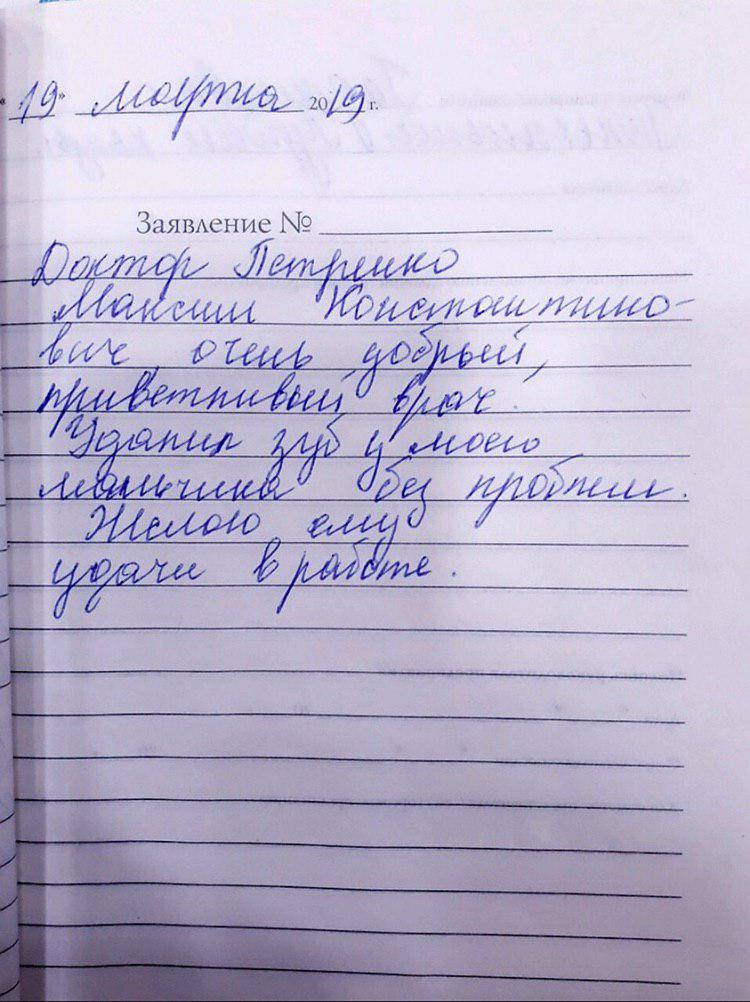 « 19 » марта 2019 г.
Заявление № 
Доктор Петренко
Максим Константино-
вич, очень добрый,
приветливый врач.
Удалил зуб у моего
мальчика без проблем.
Желаю ему
удачи в работе.